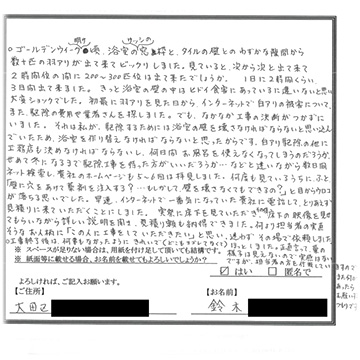 ○ゴールデンウィーク明け頃、浴室の窓サッシの枠と、タイルの壁とのわずかな隙間から
数十匹の羽アリが出て来てビックリしました。見ていると、次から次と出て来て
2時間位の間に200〜300匹位は出て来たでしょうか。1日に2時間くらい、
3日間出て来ました。きっと浴室の壁の中はヒドイ食害にあっているに違いないと思い
大変ショックでした。初めに羽アリを見た日から、インターネットで白アリの被害について、
また、駆除の費用や業者さんを探しました。でも、なかなか工事の決断がつかずに
いました。それは私が、駆除するためには浴室の壁を壊さなければならないと思い込ん
でいたため、浴室を作り替えなければならないと思ったからです。白アリ駆除の他に
工務店も決めなければならないし、何日間お風呂を使えなくなってしまうのだろうか、
せめて冬になるまで駆除工事を待った方がいいだろうか…などと迷いながら数日間
ネット検索し、貴社のホームページもずい分見ました。何度も見ているうちに、ふと
「壁に穴をあけて薬剤を注入する?…もしかして、壁を壊さなくてもできるの?」と目からウロコ
が落ちる思いでした。早速、インターネットで一番気になっていた貴社に電話して、とりあえず
見積りに来ていただくことにしました。実際に床下を見ていただき、床下の映像を見せ
てもらいながら詳しい説明を聞き、見積り額も納得できました。何より担当者の実直
そうなお人柄に「この人に工事をしていただきたい」と思い、迷わずその場で依頼しました。
○工事終了後は、何事もなかったようにきれいで(どこもキズしてなく)ほっとしました。
※ スペースが足りない場合は、用紙を付け足して頂いても結構です。
※ 紙面等に載せる場合、お名前を載せてもよろしいでしょうか?
☑はい □匿名で
よろしければ、ご記入お願いします。
【ご住所】 【お名前】
太田市 鈴木